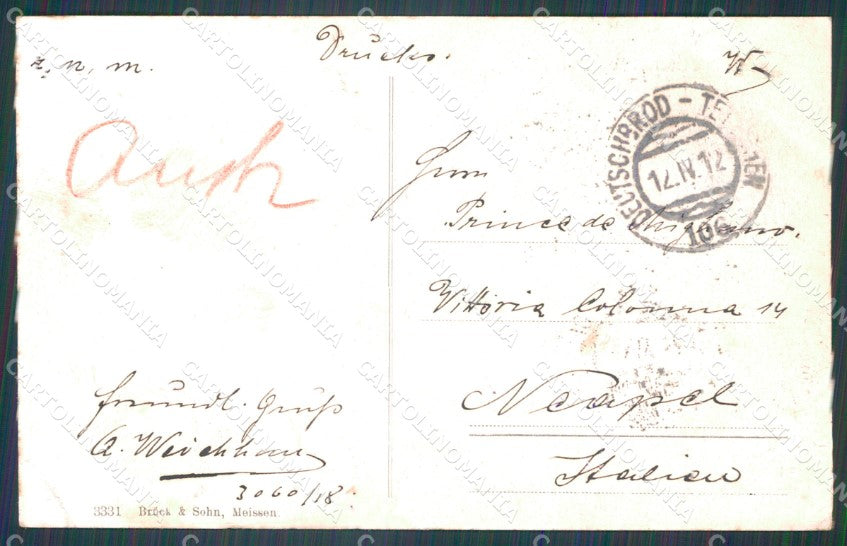 Drucks.
z. n. m.
W
Ausch
DEUTSCHBROD - TE
12.IV.12
106
Herrn
Prince de
Vittoria Colonna 14
Neapel
Italien
freundl. Gruß
A.
3060/18.
3331 Brück & Sohn, Meissen
CARTOLINOMANIA